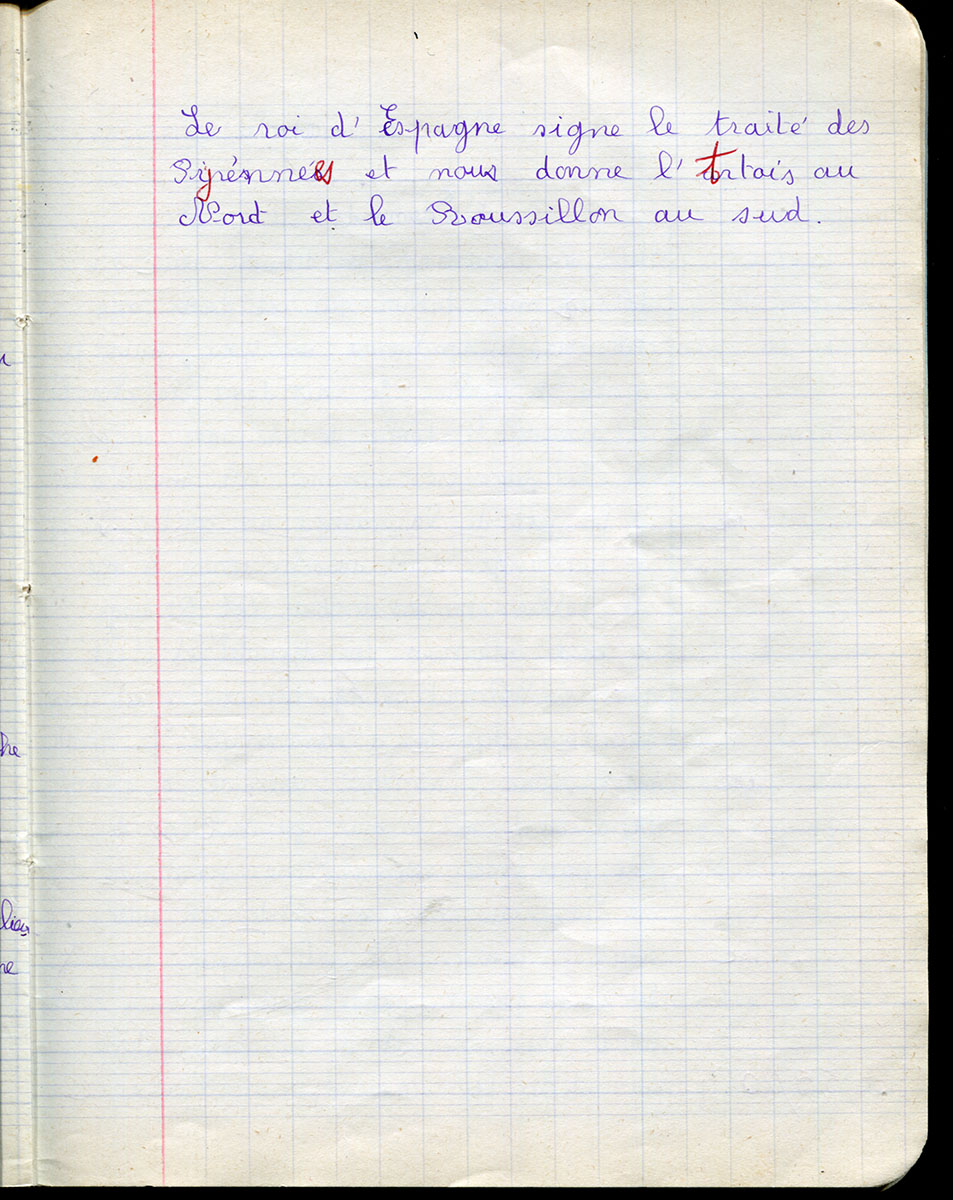 Le roi d'Espagne signe le traité des
Pyrénnées et nous donne l'Artois au
Nord et le Roussillon au sud.
he
lieu
ne